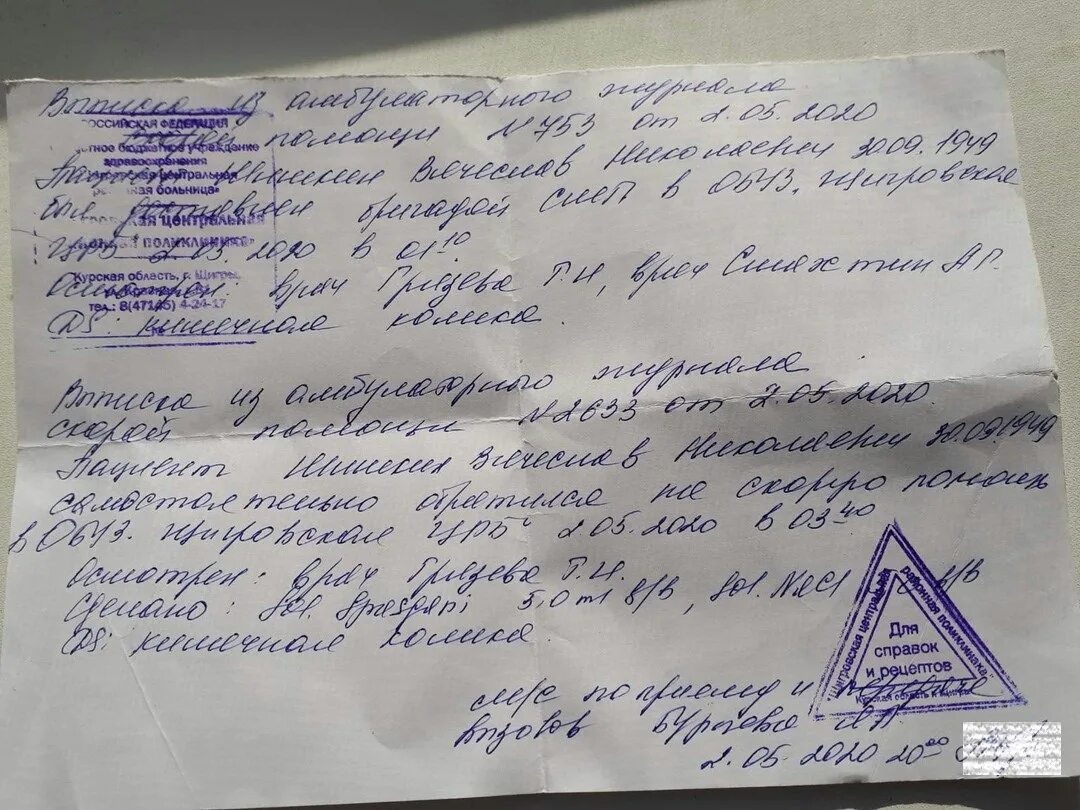 Выписка из амбулаторного журнала
РОССИЙСКАЯ ФЕДЕРАЦИЯ
помощи №753 от 2.05.2020
бюджетное учреждение
здравоохранения
центральная
больница»
Вячеслав Николаевич 30.09.1949
был доставлен бригадой СМП в ОБУЗ. Щигровская
центральная
поликлиника»
ЦРБ 2.05.2020 в 01¹⁰
Курская область, г. Щигры,
тел.: 8(47145) 4-24-17
Осмотрен: врач Грязева Т.Н, врач
DS: кишечная колика.
Выписка из амбулаторного журнала
скорой помощи №2633 от 2.05.2020.
Пациент Вячеслав Николаевич 30.09.1949
самостоятельно обратился на скорую помощь
в ОБУЗ. Щигровская ЦРБ 2.05.2020 в 03⁴⁰
Осмотрен: врач Грязева Т.Н.
Сделано: Sol. 5,0 в/в, Sol. NaCl в/в
DS: кишечная колика.
"Щигровская центральная районная поликлиника"
Для
справок
и рецептов
м/с по приему и передаче
вызовов
2.05.2020 20⁰⁰